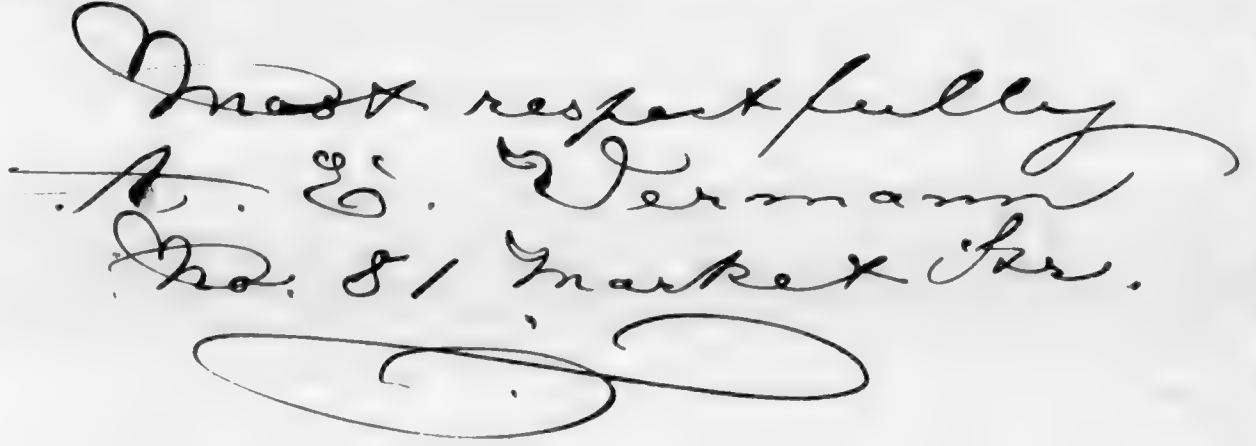 Most respectfully
A. E. Wermann
No. 81 Market Str.